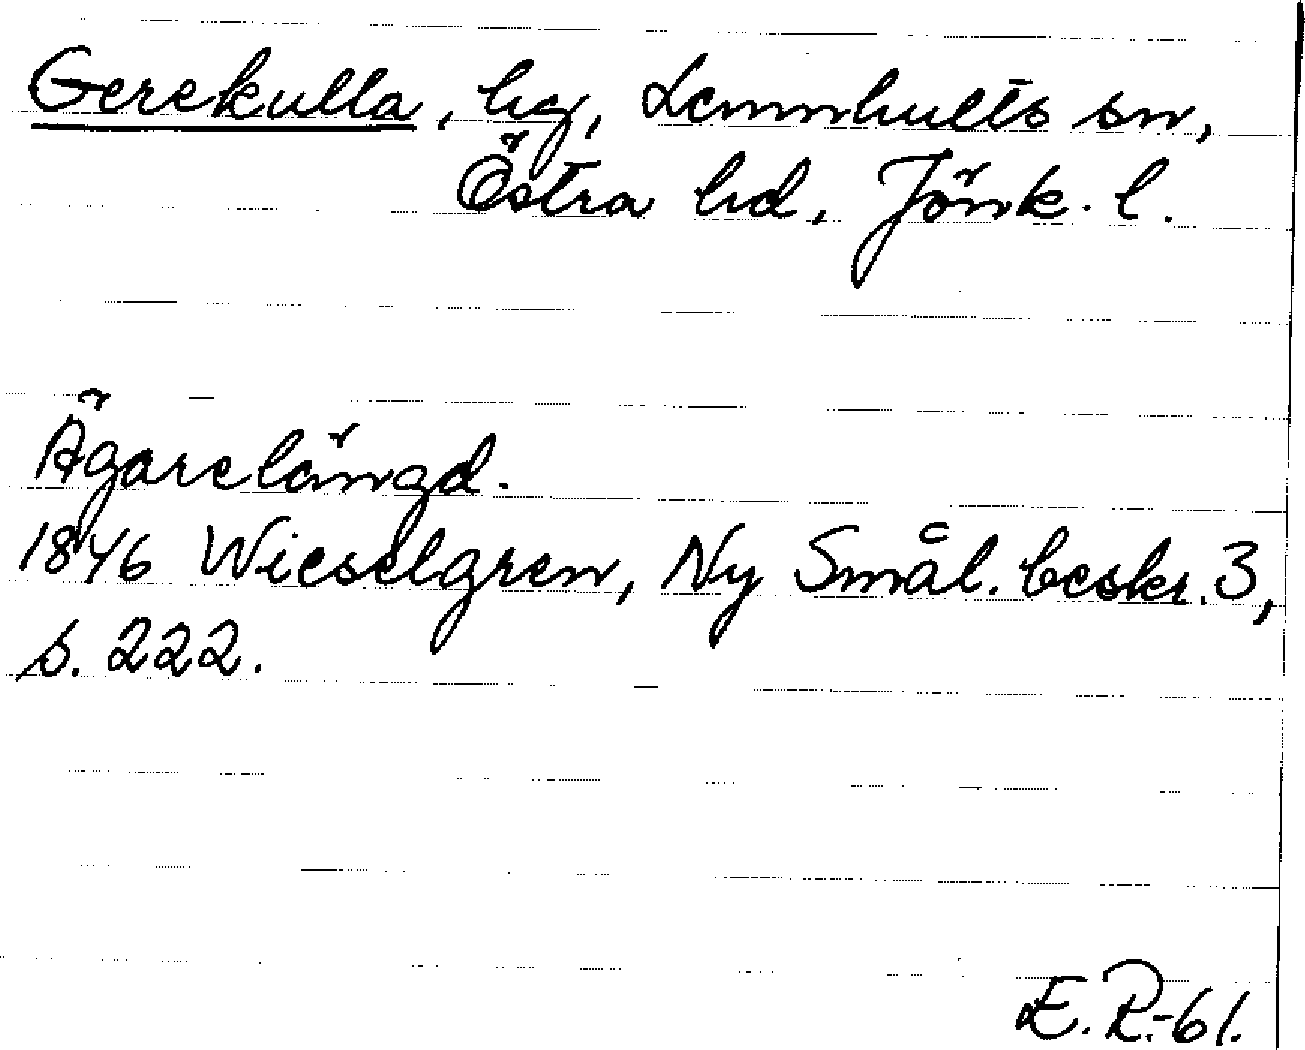 Gerekulla, hg, Lemnhults sn,
Östra hd, Jönk. l.
Ägarelängd.
1846 Wieselgren, Ny Smål. beskr. 3,
s. 222.
E. R.-61.